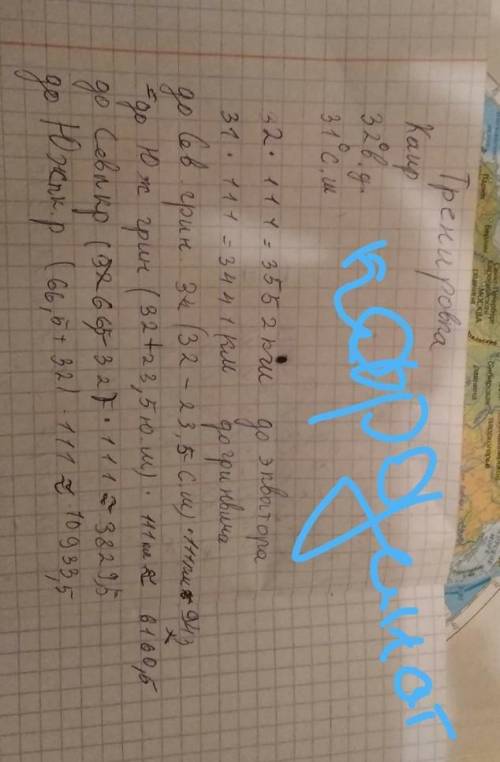 Тренировка
Каир
32° в.д.
31° с.ш
32 · 111 = 3552 км до экватора
31 · 111 = 3441 км до гринвича
до Сев. грин 32 (32 - 23,5 С ш) · 111км ≈ 943
= до Юж грин (32+23,5 ю ш) · 111км ≈ 6160,5
до Сев пкр (66,5 - 32) · 111 ≈ 3829,5
до Юж пк.р (66,5 + 32) · 111 ≈ 10933,5
корденат
МОСКВА